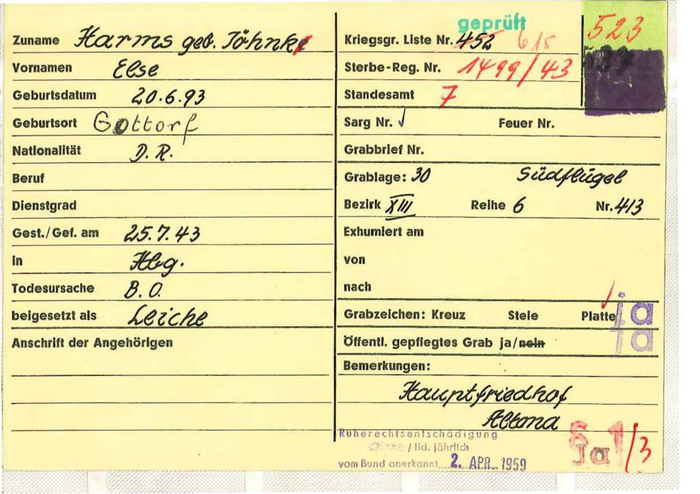 Zuname Harms geb. Jöhnke
Vornamen Else
Geburtsdatum 20.6.93
Geburtsort Gottorf
Nationalität D.R.
Beruf
Dienstgrad
Gest./Gef. am 25.7.43
in Hbg.
Todesursache B.O.
beigesetzt als Leiche
Anschrift der Angehörigen
geprüft
523
Kriegsgr. Liste Nr. 452 615
Sterbe-Reg. Nr. 1499/43
Standesamt 7
Sarg Nr. Feuer Nr.
Grabbrief Nr.
Grablage: 30 Südflügel
Bezirk XIII Reihe 6 Nr. 413
Exhumiert am
von
nach
Grabzeichen: Kreuz Stele Platte ja
Öffentl. gepflegtes Grab ja/nein ja
Bemerkungen:
Hauptfriedhof
Altona
Ruherechtsentschädigung
/ lfd. jährlich
vom Bund anerkannt 2. APR. 1959
§ 1/3
Ja